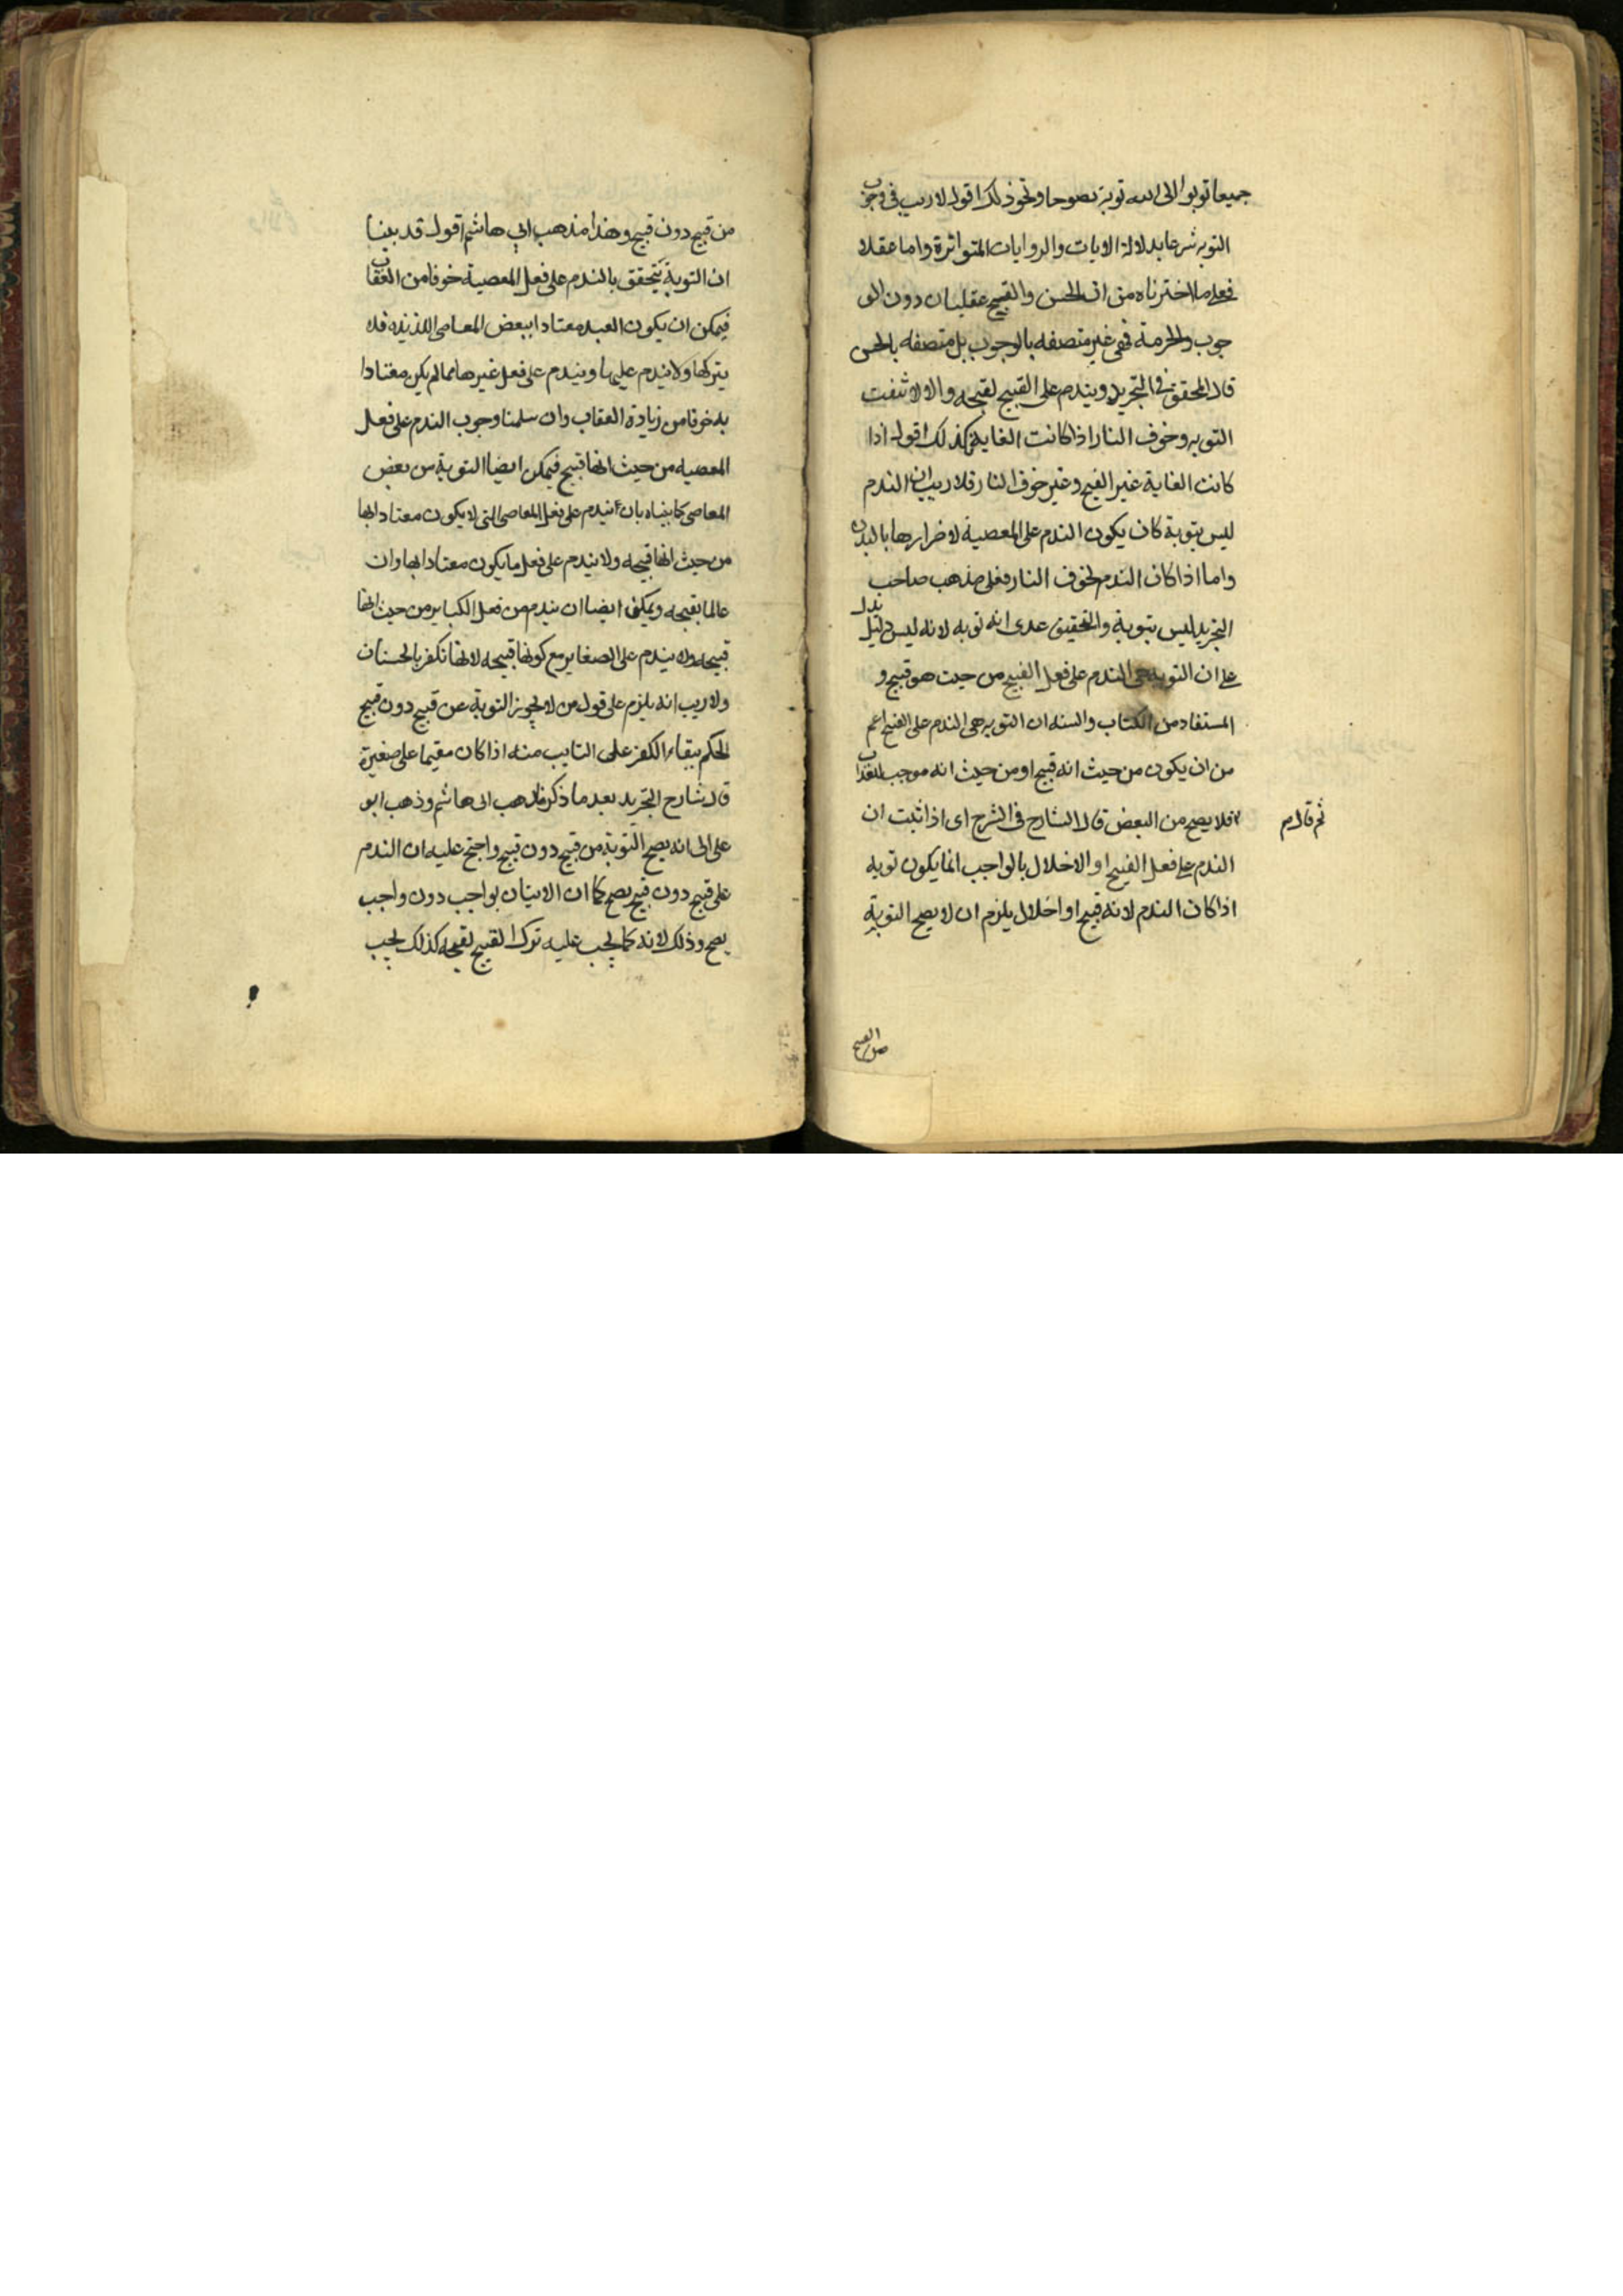 جميعا توبوا الى الله توبة نصوحا ونحو ذلك اقول لا ريب فى وجوب
التوبه شرعا بدلالة الايات والروايات المتواترة واما عقلا
فعلى ما اخترناه من ان الحسن والقبيح عقليان دون الو
جوب والحرمة فهى غير متصفه بالوجوب بل متصفه بالحسن
قال المحقق فى التجريد ويندم على القبيح لقبحه والا لانتفت
التوبه وخوف النار اذا كانت الغاية فكذلك اقول اذا
كانت الغاية غير القبح وغير خوف النار فلا ريب ان الندم
ليس بتوبة كان يكون الندم على المعصية لاضرارها بالبدن
واما اذا كان الندم لخوف النار فعلى مذهب صاحب
التجريد ليس بتوبة والتحقيق عندى انه توبه لانه ليس دليل يدل
على ان التوبه هى الندم على فعل القبيح من حيث هو قبيح و
المستفاد من الكتاب والسنه ان التوبه هى الندم على القبيح اعم
من ان يكون من حيث انه قبيح او من حيث انه موجب للعذاب
ثم قال م
فلا يصح من البعض قال الشارح فى الشرح اى اذا ثبت ان
الندم على فعل القبيح او الاخلال بالواجب انما يكون توبه
اذا كان الندم لانه قبيح او اخلال يلزم ان لا يصح التوبة
من القبيح
من قبيح دون قبيح وهذا مذهب ابي هاشم اقول قد بينا
ان التوبة يتحقق بالندم على فعل المعصية خوفا من العقاب
فيمكن ان يكون العبد معتادا ببعض المعاصى اللذيذه فلا
يتركها ولا يندم عليها ويندم على فعل غيرها مما لم يكن معتادا
به خوفا من زيادة العقاب وان سلمنا وجوب الندم على فعل
المعصيه من حيث انها قبيح فيمكن ايضا التوبة من بعض
المعاصى كما بيناه بان يندم على فعل المعاصى التى لا يكون معتادا بها
من حيث انها قبيحه ولا يندم على فعل ما يكون معتادا بها وان
عالما بقبحه ويمكن ايضا ان يندم من فعل الكباير من حيث انها
قبيحه ولا يندم على الصغاير مع كونها قبيحه لانها تكفر بالحسنات
ولا ريب انه يلزم على قول من لا يجوز التوبة عن قبيح دون قبيح
الحكم ببقاء الكفر على التايب منه اذا كان مقيما على صغيرة
قال شارح التجريد بعد ما ذكر مذهب ابى هاشم وذهب ابو
على الى انه يصح التوبة من قبيح دون قبيح واحتج عليه ان الندم
على قبيح دون قبيح يصح كما ان الاتيان بواجب دون واجب
يصح وذلك لانه كما يجب عليه ترك القبيح لقبحه كذلك يجب